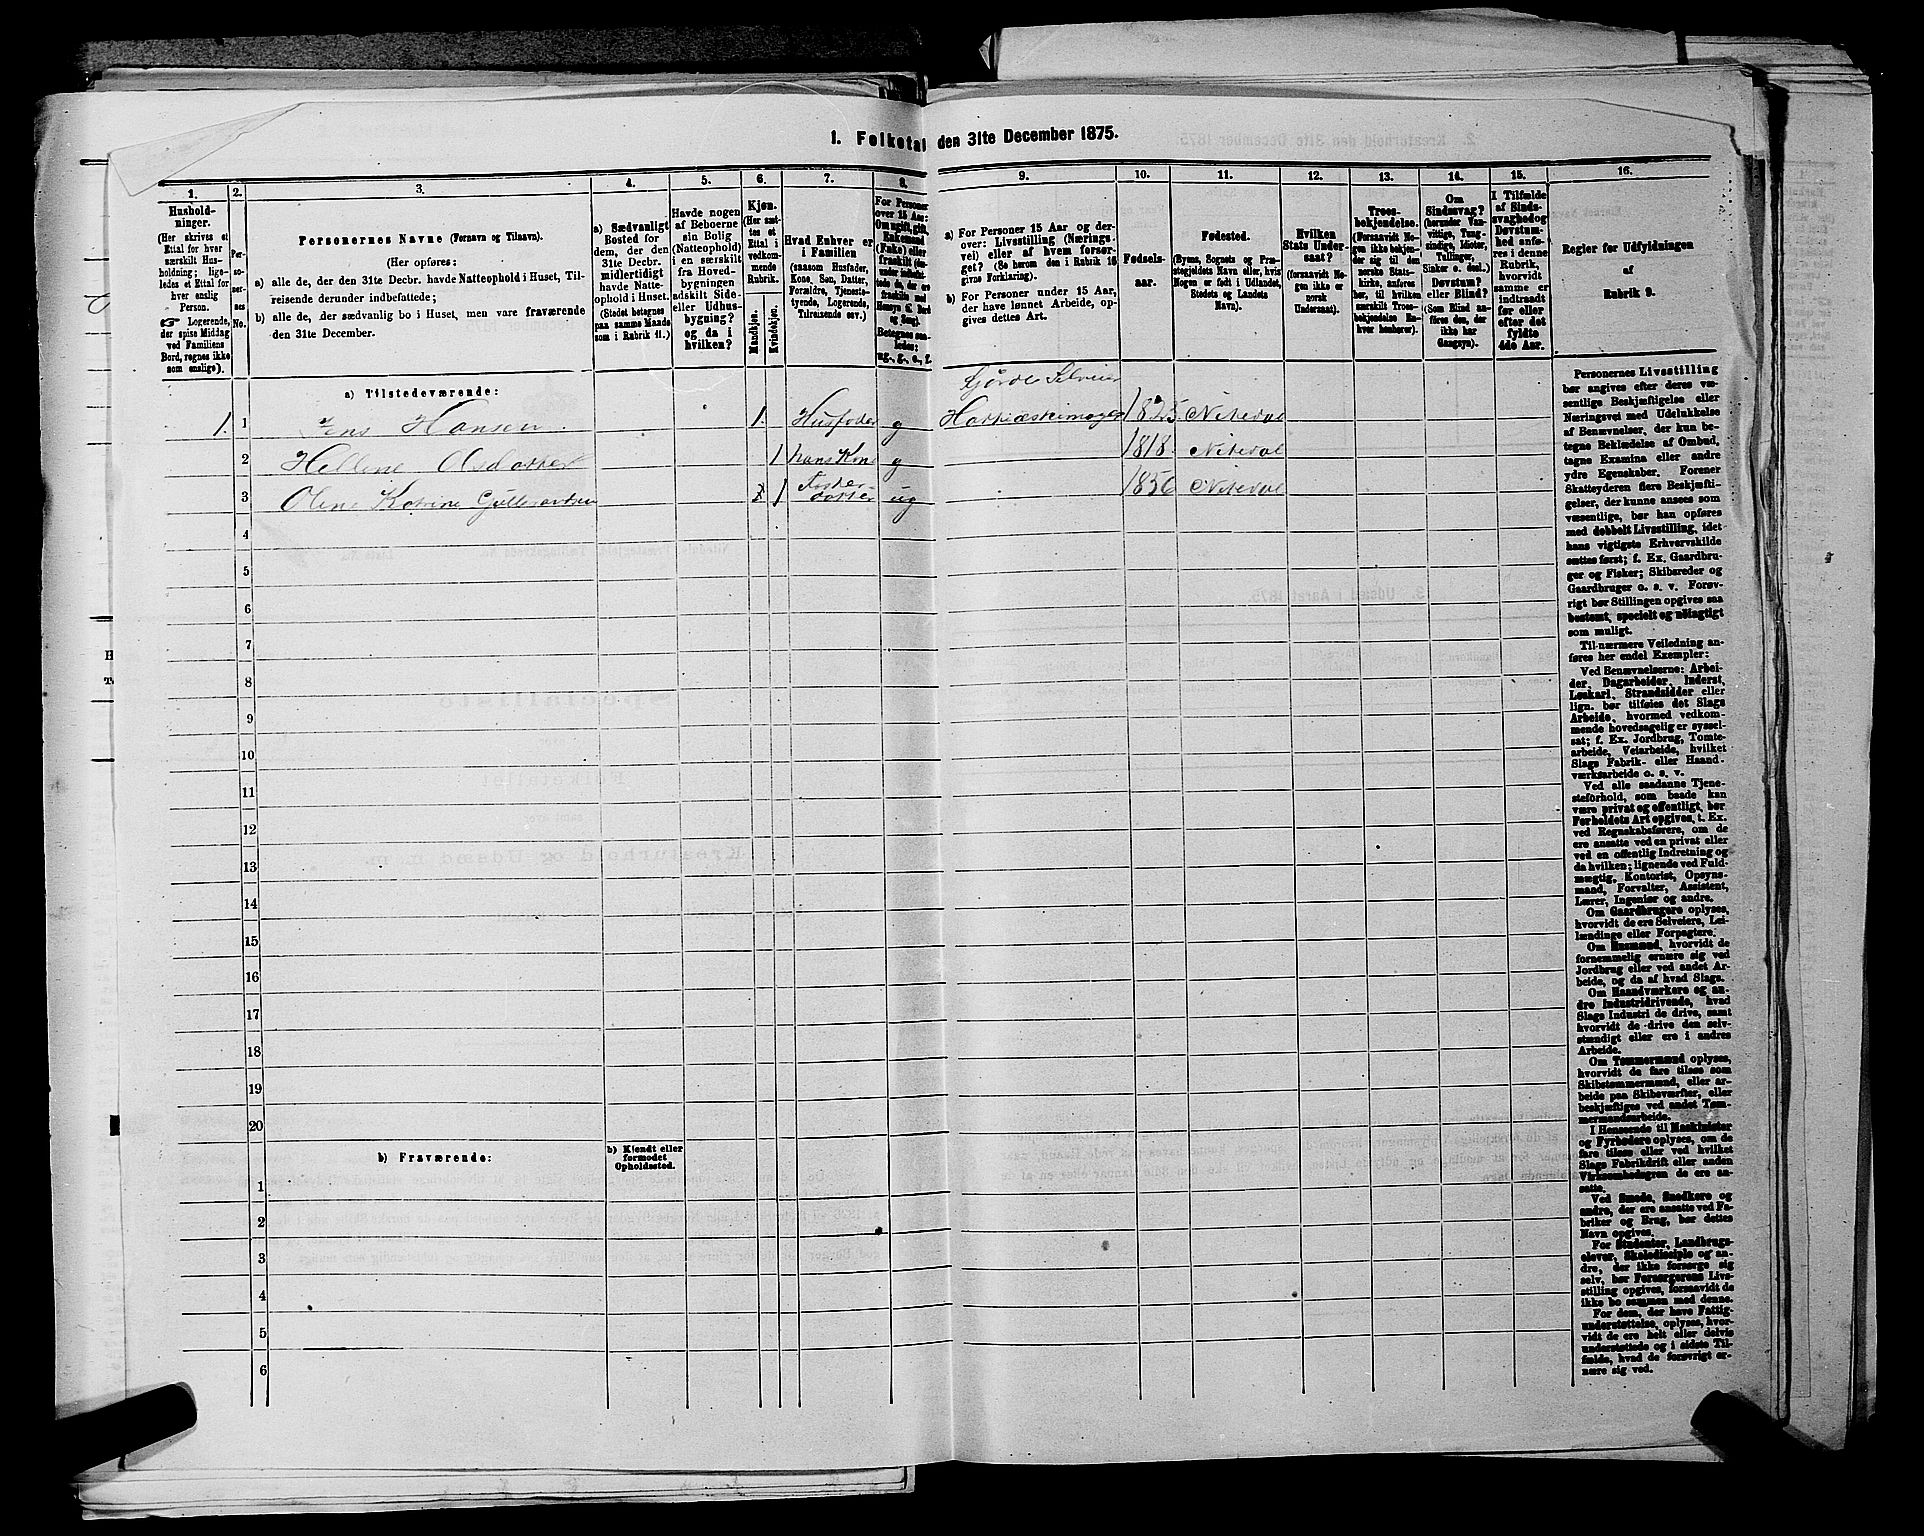 1. Folketal den 31te December 1875.
1. 2. 3. 4. 5. 6. 7. 8. 9. 10. 11. 12. 13. 14. 15. 16.
Hushold-
ninger.
(Her skrives et
Ettal for hver
særskilt Hus-
holdning; lige-
ledes et Ettal for
hver enslig
Person.
☞ Logerende,
der spise Middag
ved Familiens
Bord, regnes ikke
som enslige).
Per-
so-
ner-
nes
No.
Personernes Navne (Fornavn og Tilnavn).
(Her opføres:
a) alle de, der den 31te Decbr. havde Natteophold i Huset, Til-
reisende derunder indbefattede;
b) alle de, der sædvanlig bo i Huset, men vare fraværende
den 31te December.
a) Sædvanligt
Bosted for
dem, der den
31te Decbr.
midlertidigt
havde Natte-
ophold i Huset.
(Stedet betegnes
paa samme Maade
som i Rubrik 11.)
Havde nogen
af Beboerne
sin Bolig
(Natteophold)
i en særskilt
fra Hoved-
bygningen
adskilt Side-
eller Udhus-
bygning?
og da i
hvilken?
Kjøn.
(Her sæt-
tes et
Ettal i
vedkom-
mende
Rubrik.
Mandkjøn.
Kvindekjøn.
Hvad Enhver er
i Familien
(saasom Husfader,
Kone, Søn, Datter,
Forældre, Tjeneste-
tyende, Logerende,
Tilreisende osv.)
For Personer
over 15 Aar:
Om ugift, gift,
Enkemand
(Enke) eller
fraskilt
Betegnes saa-
ledes:
ug., g., e., f.
a) For Personer 15 Aar og der-
over: Livsstilling (Nærings-
vei) eller af hvem forsør-
get? (Se herom den i Rubrik 16
givne Forklaring).
b) For Personer under 15 Aar,
der have lønnet Arbeide, op-
gives dettes Art.
Fødsels-
aar.
Fødested.
(Byens, Sognets og Præ-
stegjeldets Navn eller, hvis
Nogen er født i Udlandet,
Stedets og Landets
Navn).
Hvilken
Stats Under-
saat?
(forsaavidt No-
gen ikke er
norsk
Undersaat).
Troes-
bekjendelse.
(Forsaavidt No-
gen ikke bekjen-
der sig til den
norske Stats-
kirke, anføres
her, til hvilken
særskilt Troes-
bekjendelse En-
hver henhører).
Om
Sindssvag?
(herunder Van-
vittige, Tung-
sindige, Idioter,
Tullinger,
Sinker o. desl.)
Døvstum?
eller Blind?
(Som Blind an-
føres den, der
ikke har
Gangsyn).
I Tilfælde
af Sinds-
svaghed og
Døvstum-
hed anfø-
res i denne
Rubrik,
hvorvidt
samme er
indtraadt
før eller
efter det
fyldte
4de Aar.
Regler for Udfyldningen
af
Rubrik 9.
a) Tilstedeværende:
1. 1 Jens Hansen 1. Husfader g
Gjörde Selveier
1825 Nitedal
2 Hellene Olsdatter 1 hans Kone g 1818 Nitedal
3 Olene Katrine 1 datter ug 1856 Nitedal
4
5
6
7
8
9
10
11
12
13
14
15
16
17
18
19
20
b) Fraværende:
b) Kjendt eller
formodet
Opholdssted.
1
2
3
4
5
6
Personernes Livsstilling
bør angives efter deres væ-
sentlige Beskjæftigelse eller
Næringsvei med Udelukkelse
af Benævnelser, der kun be-
tegne Beklædelse af Ombud,
tagne Examina eller andre
ydre Egenskaber. Forener
Skatteyderen flere Beskjæfti-
gelser, der kunne ansees som
væsentlige, bør han opføres
med dobbelt Livsstilling, idet
hans vigtigste Erhvervskilde
sættes først; f. Ex. Gaardbru-
ger og Fisker; Skibsreder og
Gaardbruger o. s. v. Forøv-
rigt bør Stillingen opgives saa
bestemt, specielt og nøiagtigt
som muligt.
Til nærmere Veiledning an-
føres her endel Exempler:
Ved Benævnelserne: Arbei-
der, Dagarbeider, Inderst,
Løskarl, Strandsidder eller
lign. bør tilføies det Slags
Arbeide, hvormed vedkom-
mende hovedsagelig er syssel-
sat; f. Ex. Jordbrug, Tomte-
arbeide, Veiarbeide, hvilket
Slags Fabrik- eller Haand-
værksarbeide o. s. v.
Ved alle saadanne Tjene-
steforhold, som baade kan
være privat og offentligt, bør
Forholdets Art opgives, t. Ex.
ved Regnskabsførere, om de
ere ansatte ved en privat eller
ved en offentlig Indretning og
da hvilken; lignende ved Fuld-
mægtig, Kontorist, Opsyns-
mand, Forvalter, Assistent,
Lærer, Ingeniør og andre.
Om Gaardbrugere oplyses,
hvorvidt de ere Selveiere, Lei-
lændinge eller Forpagtere.
Om Husmænd, hvorvidt de
fornemmelig ernære sig ved
Jordbrug eller ved andet Ar-
beide, og da af hvad Slags.
Om Haandværkere og an-
dre Industridrivende, hvad
Slags Industri de drive, samt
hvorvidt de drive den selv-
stændigt eller ere i andres
Arbeide.
Om Tømmermænd oplyses,
hvorvidt de fare tilsøs som
Skibstømmermænd, eller ar-
beide paa Skibsværfter, eller
beskjæftiges ved andet Tøm-
mermandsarbeide.
I Henseende til Maskinister
og Fyrbødere oplyses, om de
fare tilsøs eller ved hvilket
Slags Fabrikdrift eller anden
Virksomhedsgren de ere an-
satte.
Ved Smede, Snedkere og
andre, der ere ansatte ved Fa-
briker og Brug, bør dettes
Navn opgives.
For Studenter, Landbrugs-
elever, Skoledisciple og an-
dre, der ikke forsørge sig
selv, bør Forsørgerens Livs-
stilling opgives, forsaavidt de
ikke bo sammen med denne.
For dem, der have Fattig-
understøttelse, oplyses, hvor-
vidt de ere helt eller delvis
understøttede og i sidste Til-
fælde, hvad de forøvrigt er-
nære sig ved.